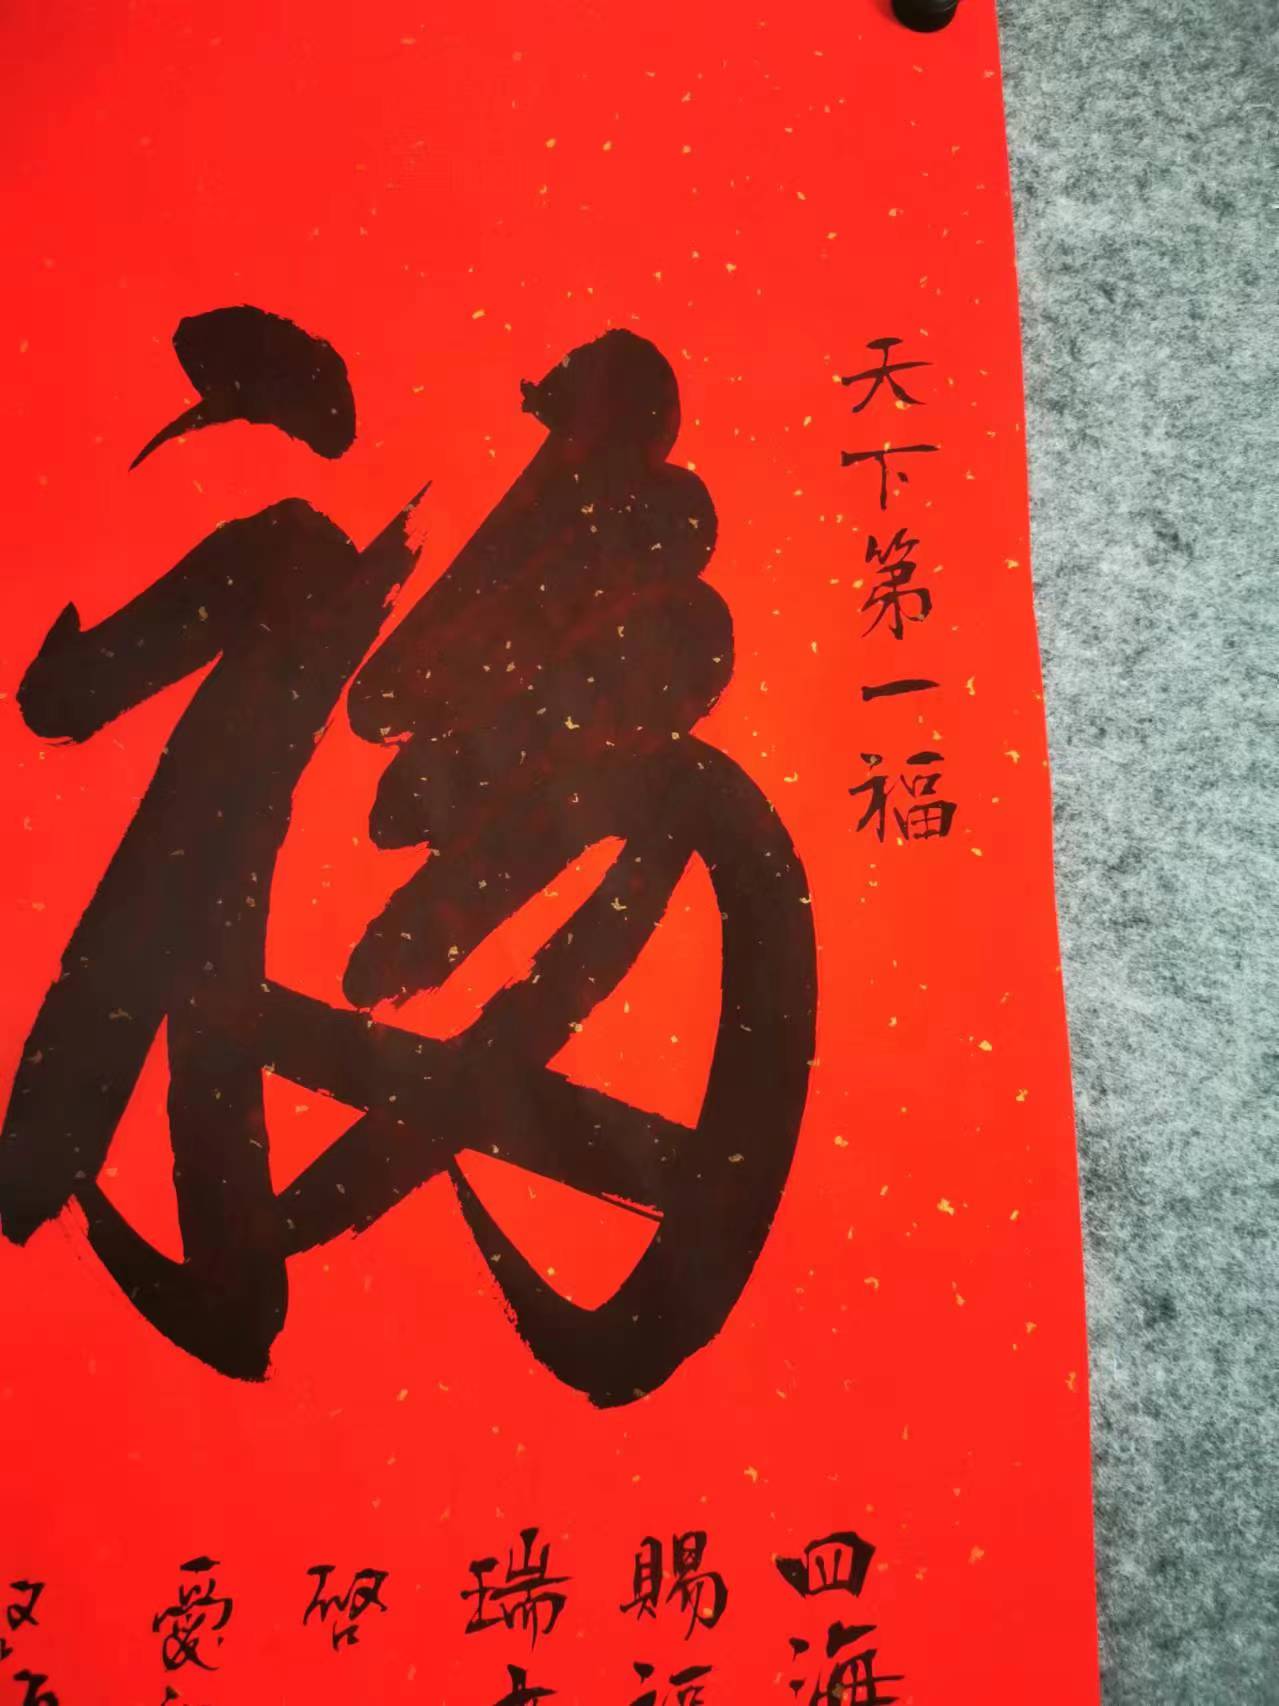 天下第一福
福
四海
賜福
瑞
啓
愛